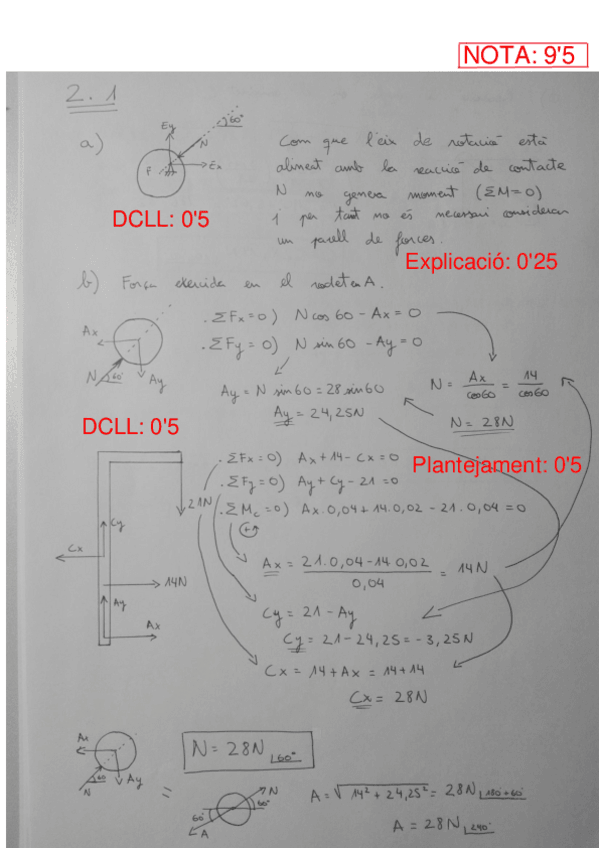 NOTA: 9'5
2.1
a)
60°
Ey
N
Ex
F
Com que l'eix de rotació està
alineat amb la reacció de contacte
N no genera moment (ΣM=0)
i per tant no és necessari considerar
un parell de forces.
DCLL: 0'5
Explicació: 0'25
b) Força exercida en el rodet en A.
Ax
N
60°
Ay
. ΣFx=0) N cos 60 - Ax = 0
. ΣFy=0) N sin 60 - Ay = 0
Ay = N sin 60 = 28 sin 60
Ay = 24,25N
N = Ax/cos60 = 14/cos60
N = 28N
DCLL: 0'5
Plantejament: 0'5
. ΣFx=0) Ax + 14 - Cx = 0
. ΣFy=0) Ay + Cy - 21 = 0
. ΣMc=0) Ax·0,04 + 14·0,02 - 21·0,04 = 0
21N
Cy
Cx
14N
Ay
Ax
Ax = (21·0,04 - 14·0,02)/0,04 = 14N
Cy = 21 - Ay
Cy = 21 - 24,25 = -3,25N
Cx = 14 + Ax = 14 + 14
Cx = 28N
60
N
Ay
=
N = 28N 60°
N
60°
60°
A
A = √14² + 24,25² = 28N 180+60°
A = 28N 240°